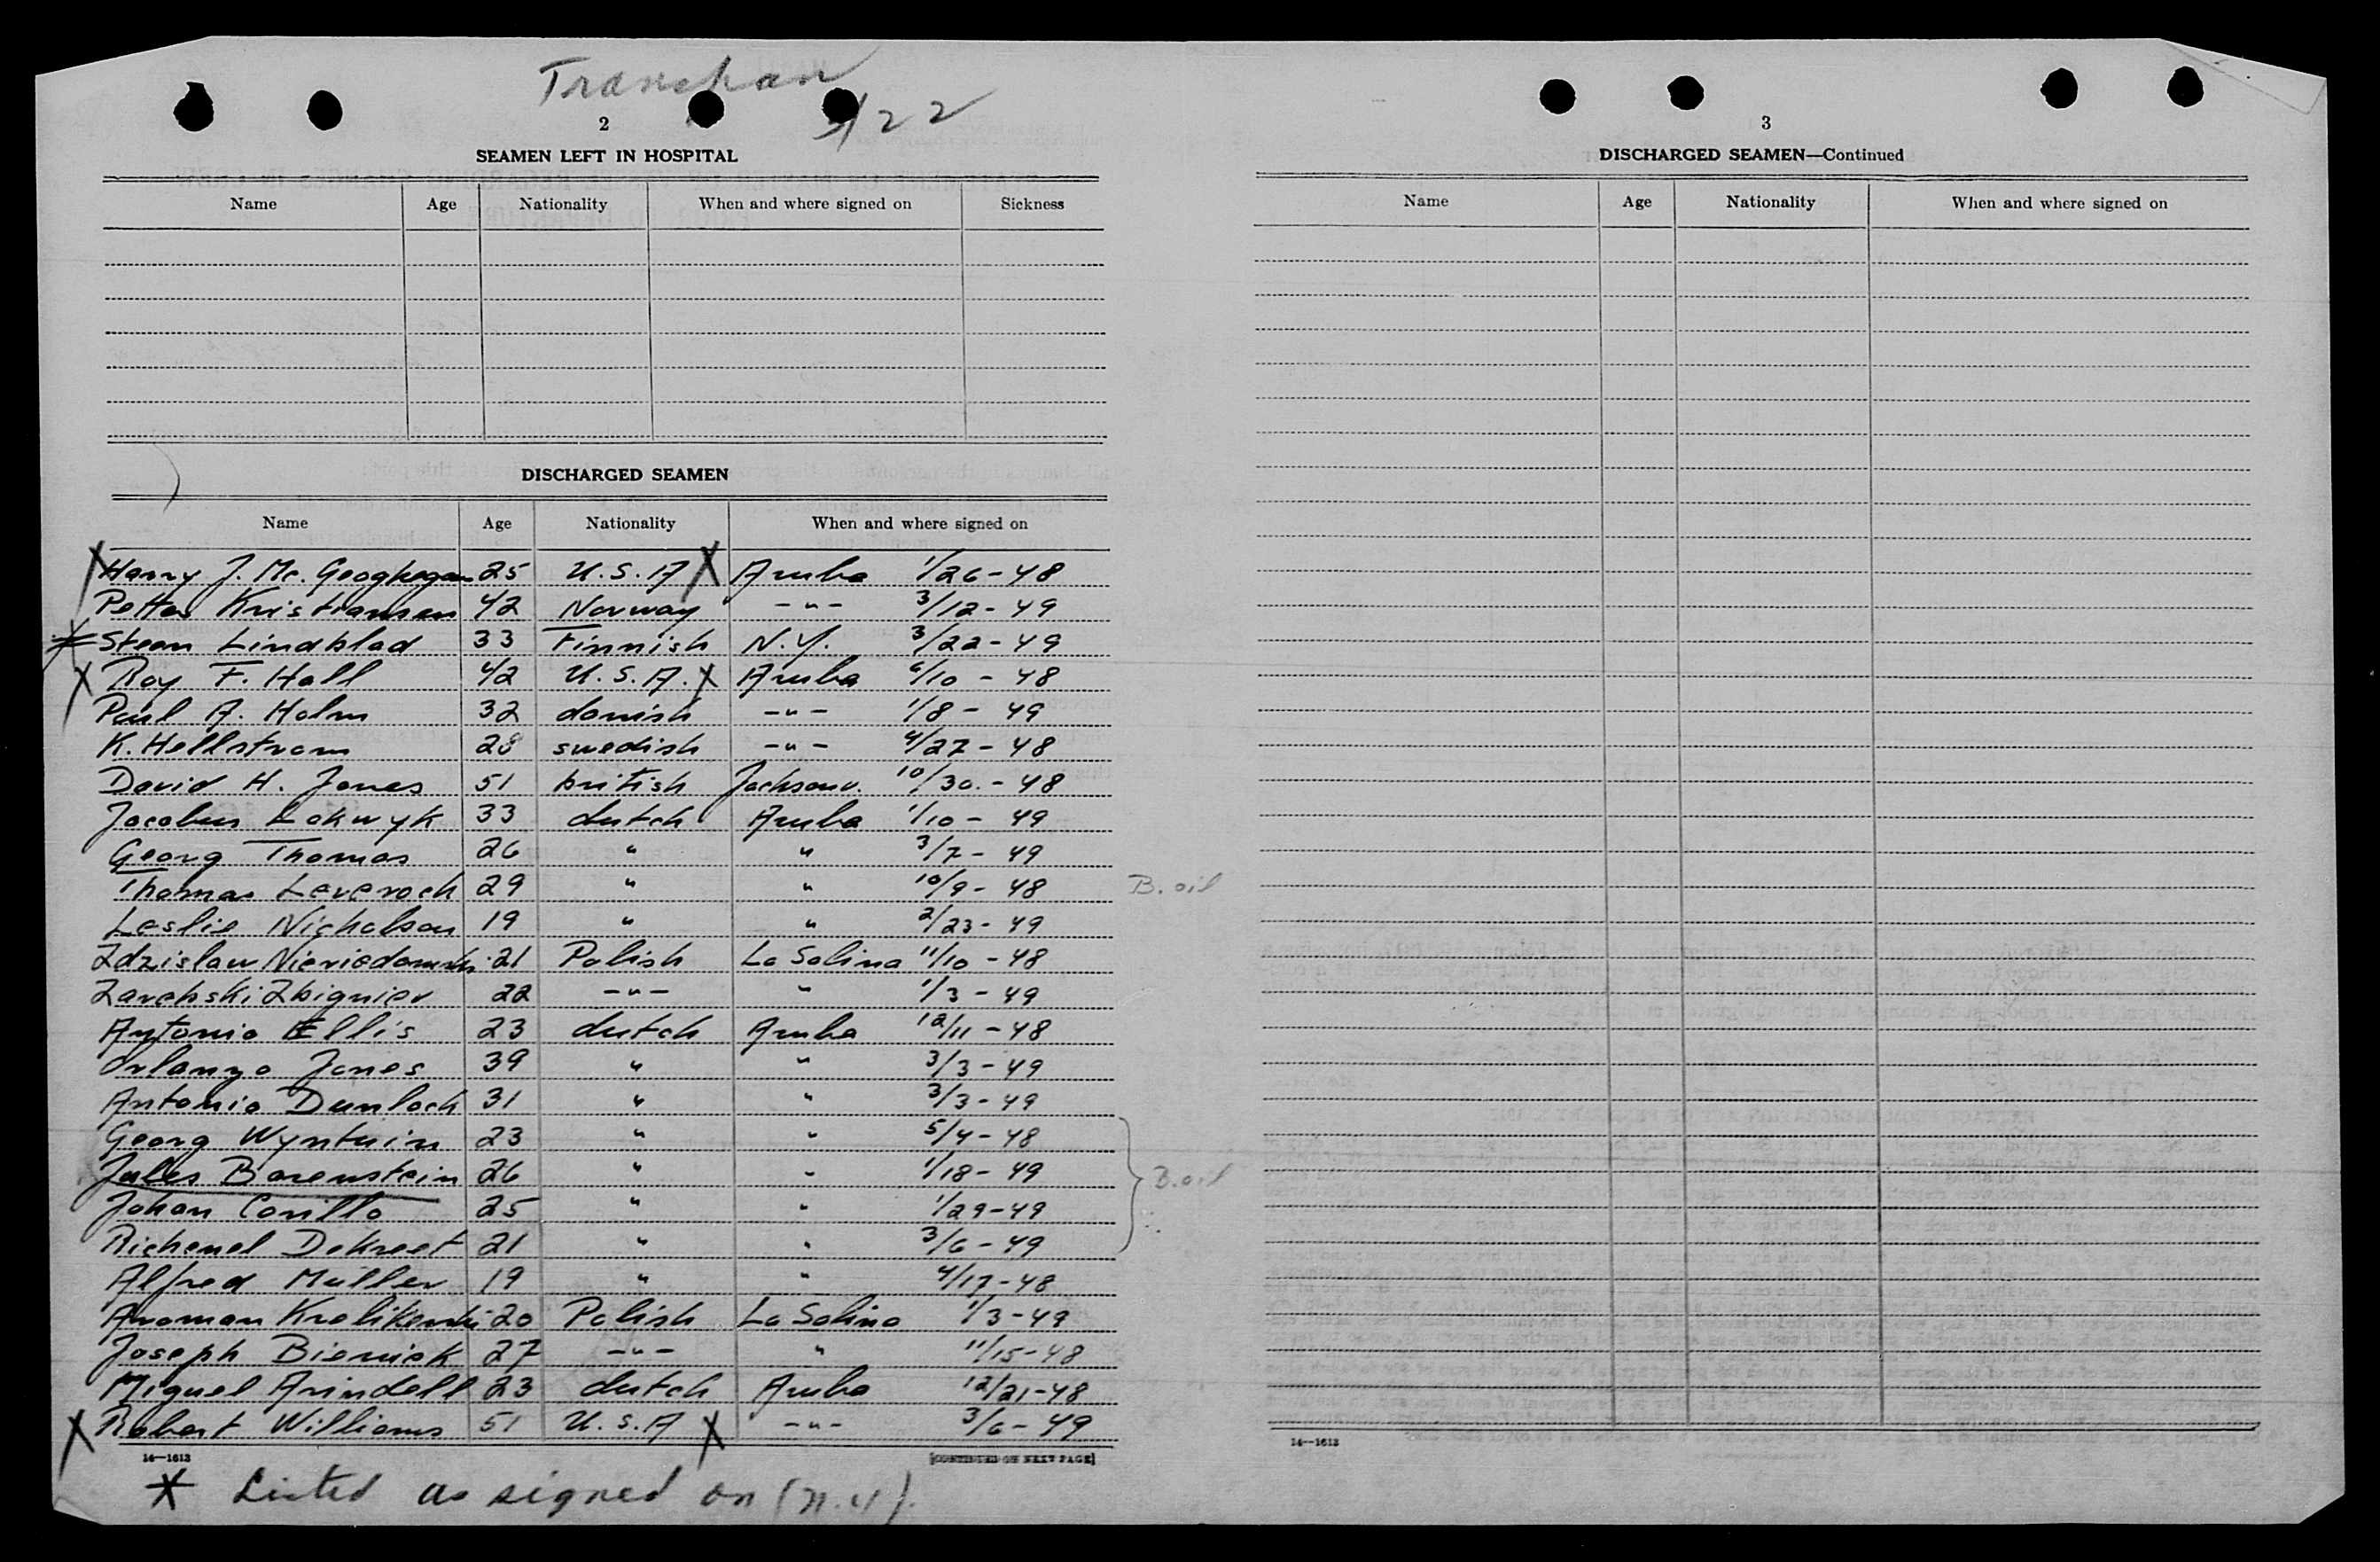 Tranchan
3/22
2
SEAMEN LEFT IN HOSPITAL
Name Age Nationality When and where signed on Sickness
DISCHARGED SEAMEN
Name Age Nationality When and where signed on
X Harry J. Mc. Geoghegan 25 U.S.A X Aruba 1/26-48
Petter Kristiansen 42 Norway -"- 3/12-49
* Steen Lindblad 33 Finnish N.Y. 3/22-49
X Roy F. Hall 42 U.S.A. X Aruba 6/10-48
Paul A. Holm 32 danish -"- 1/8-49
K. Hellstrom 28 swedish -"- 4/27-48
David H. Jones 51 british Jacksonv. 10/30.-48
Jacobus Lokwyk 33 dutch Aruba 1/10-49
Georg Thomas 26 " " 3/7-49
Thomas Leverock 29 " " 10/9-48 B. oil
Leslie Nicholson 19 " " 2/23-49
Zdzislaw 21 Polish La Salina 11/10-48
Zbigniev 22 -"- " 1/3-49
Antonio Ellis 23 dutch Aruba 12/11-48
Orlanzo Jones 39 " " 3/3-49
Antonio Dunlock 31 " " 3/3-49
Georg Wyntuin 23 " " 5/4-48
Jules Barenstein 26 " " 1/18-49 B.oil
Johan Corillo 25 " " 1/29-49
Richenel DeKreet 21 " " 3/6-49
Alfred Muller 19 " " 4/17-48
20 Polish La Salina 1/3-49
Joseph Bieniek 27 -"- " 11/15-48
Miguel Arindell 23 dutch Aruba 12/21-48
X Robert Williams 51 U.S.A X -"- 3/6-49
14—1613 [CONTINUED ON NEXT PAGE]
* Listed as signed on (N.Y).
3
DISCHARGED SEAMEN—Continued
Name Age Nationality When and where signed on
14—1613